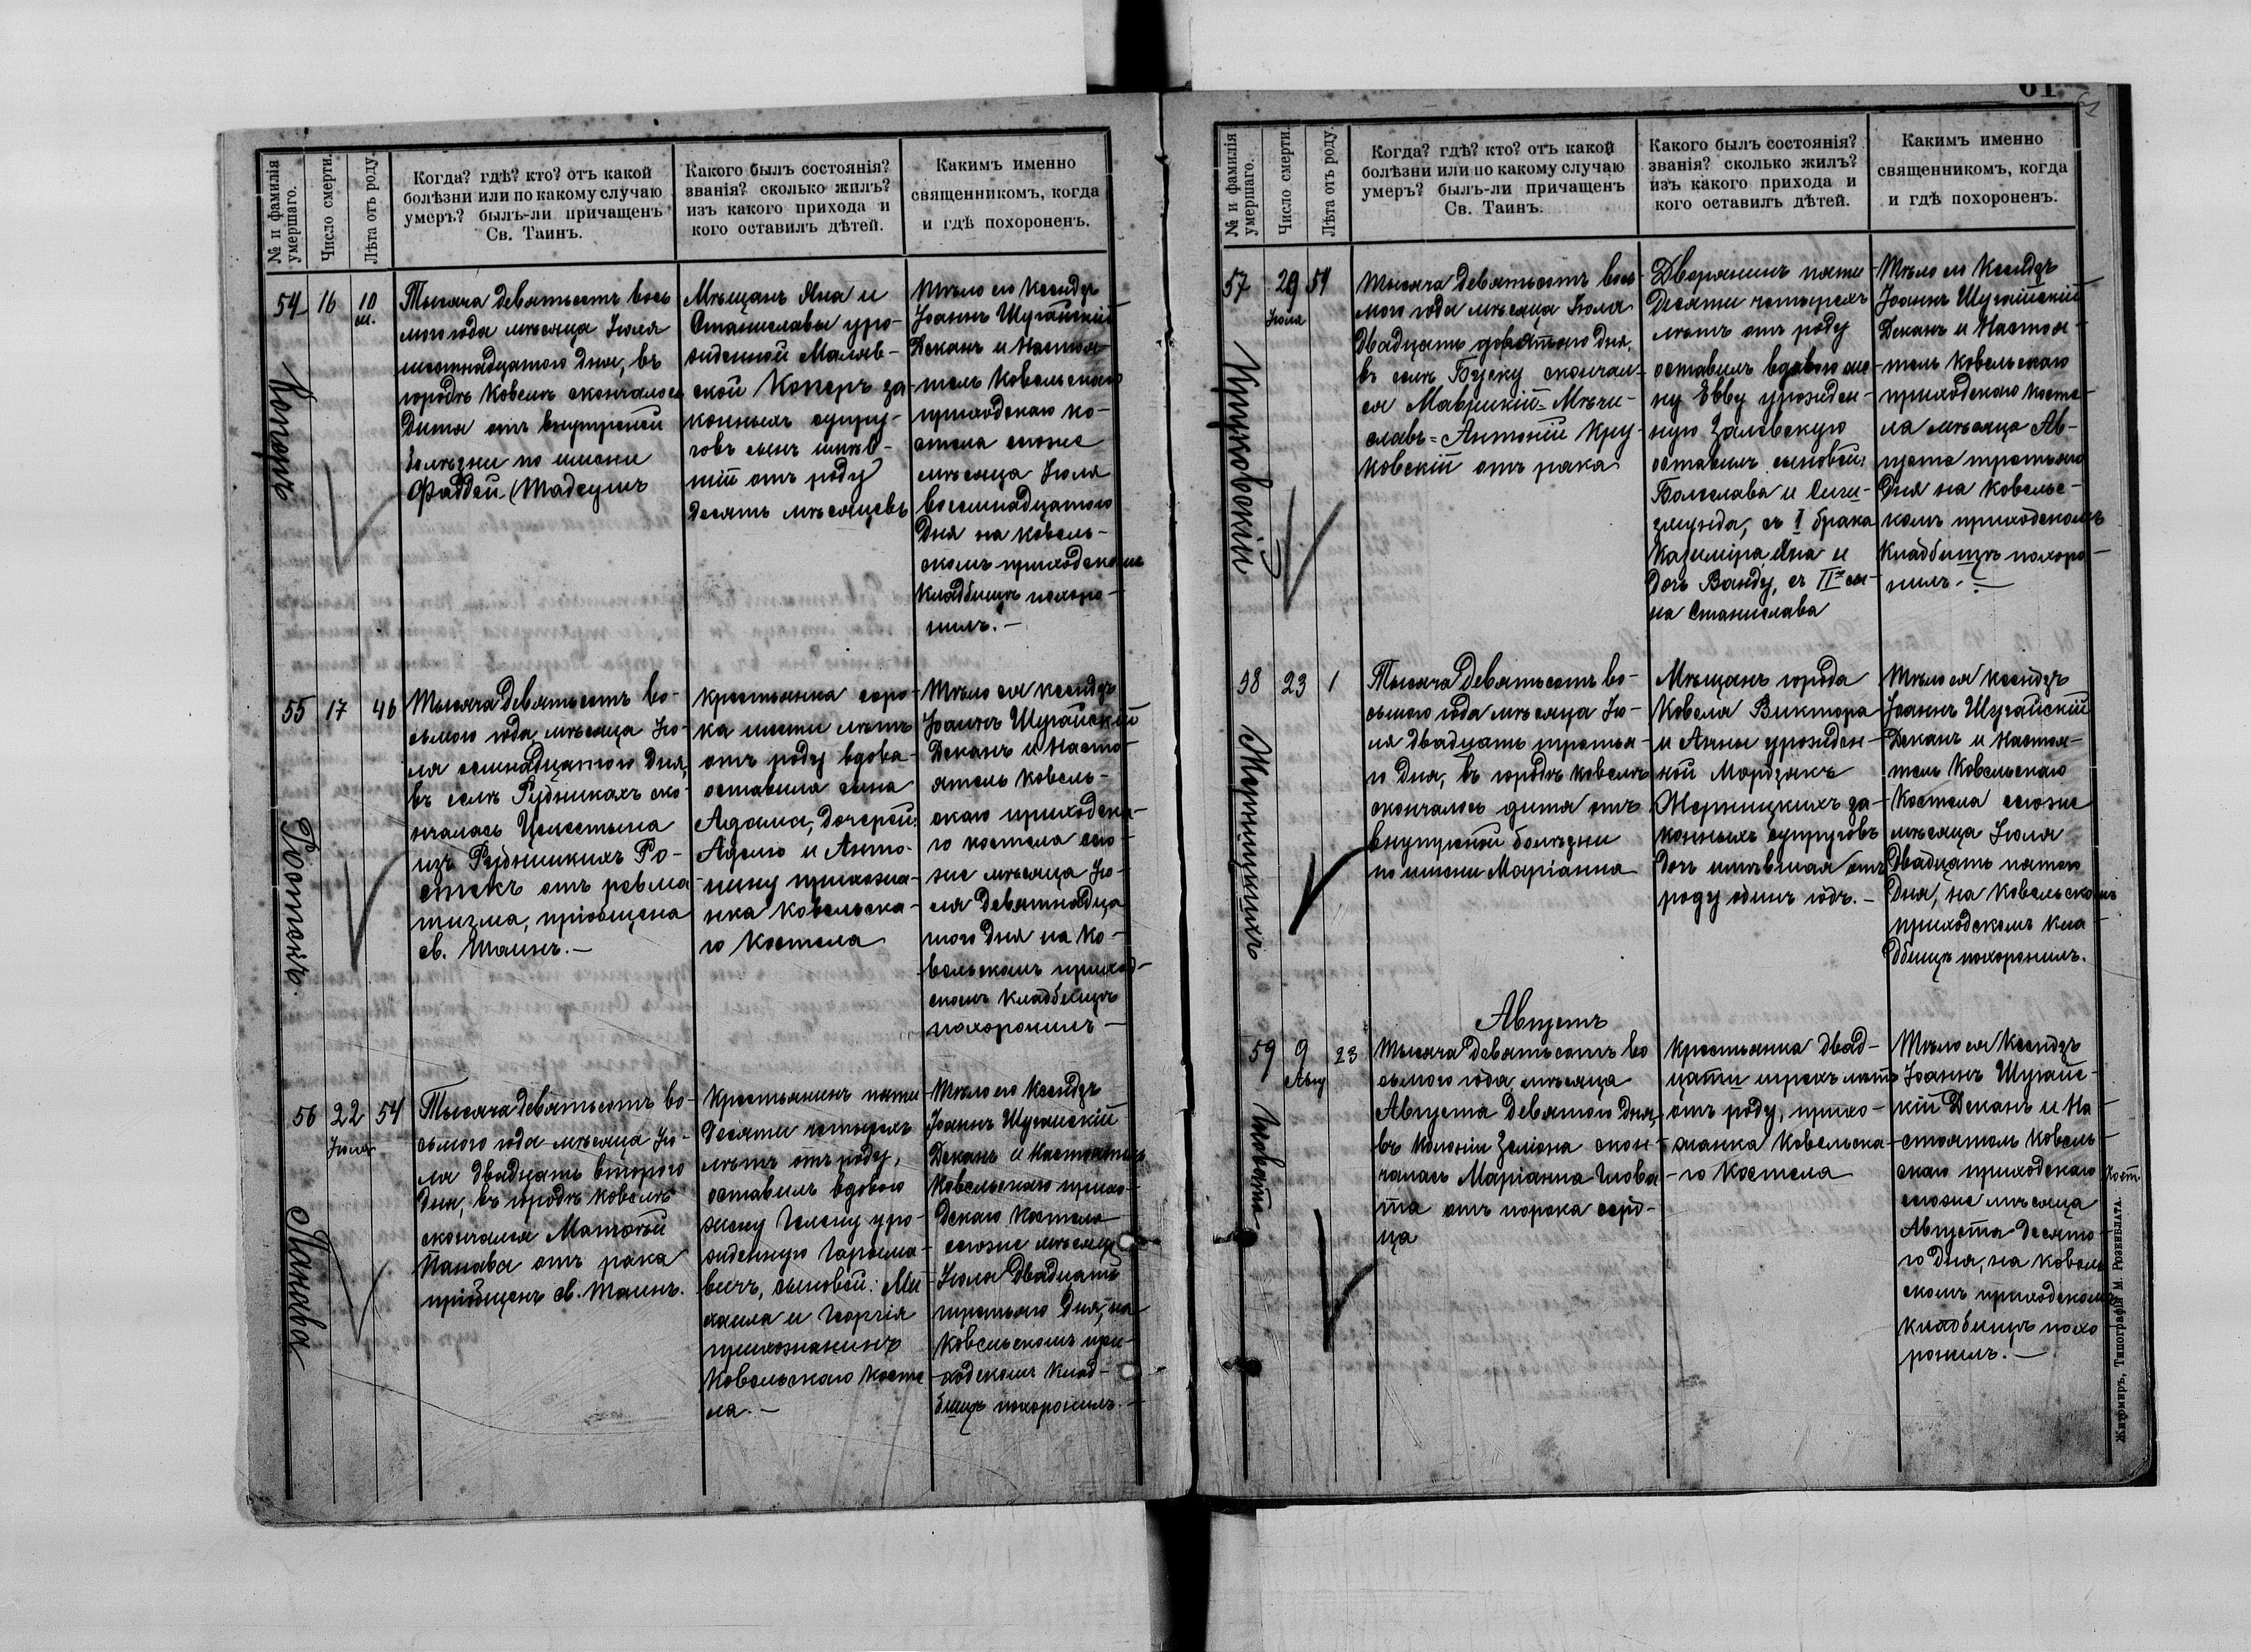 № и фамилія умершаго.
Число смерти.
Лѣта отъ роду.
Когда? гдѣ? кто? отъ какой
болѣзни или по какому случаю
умеръ? былъ-ли причащенъ
Св. Таинъ.
Какого былъ состоянія?
званія? сколько жилъ?
изъ какого прихода и
кого оставилъ дѣтей.
Какимъ именно
священникомъ, когда
и гдѣ похороненъ.
54
Коперъ
16
10
м.
Тысяча девятьсотъ вось
мого года мѣсяца Іюля
шестнадцатого дня, въ
городѣ Ковелѣ скончалось
дитя отъ внутренней
болѣзни по имени
Фаддей (Тадеушъ
Мѣщанъ Яна и
Станиславы уро-
жденной Маляв-
ской Коперъ за-
конныхъ супру-
говъ сынъ имѣв-
шій отъ роду
десять мѣсяцевъ
Тѣло его Ксендзъ
Іоаннъ Шугайскій
Деканъ и Настоя-
тель Ковельскаго
приходскаго ко-
стела сегоже
мѣсяца Іюля
восемнадцатого
дня на Ковель-
скомъ приходскомъ
кладбищѣ похоро-
нилъ.-
55
Ростекъ.
17
46
Тысяча девятьсотъ во-
сьмого года мѣсяца Ію-
ля семнадцатого дня,
въ селѣ Рудникахъ ско-
нчалась Целестына
изъ Рудницкихъ Ро-
стекъ отъ ревма
тизма, пріобщена
св. Таинъ.-
крестьянка соро-
ка шести лѣтъ
отъ роду вдова
оставила сына
Адама, дочерей:
Аделю и Анто-
нину прихожа-
нка Ковельска-
го Костела
Тѣло ея ксендзъ
Іоаннъ Шугайскій
Деканъ и Насто-
ятель Ковель-
скаго приходска-
го костела сего-
же мѣсяца Ію-
ля девятнадца
того дня на Ко-
вельскомъ приход-
скомъ кладбищѣ
похоронилъ-
56
Панава
22
Іюля
54
Тысяча девятьсотъ во-
сьмого года мѣсяца Ію-
ля двадцать второго
дня, въ городѣ Ковелѣ
скончался Матвѣй
Панава отъ рака
пріобщенъ св. Таинъ.
Крестьянинъ пяти
десяти четырехъ
лѣтъ отъ роду,
оставилъ вдовою
жену Гелену уро-
жденную Гарасма-
вичъ, сыновей: Ми
хаила и Георгія
прихожанинъ
Ковельскаго Косте
ла.-
Тѣло его Ксендзъ
Іоаннъ Шугайскій
Деканъ и Настоятель
Ковельскаго прихо-
дскаго Костела
сегоже мѣсяца
Іюля двадцать
третьяго дня, на
Ковельскомъ при-
ходскомъ клад-
бищѣ похоронилъ.-
61
№ и фамилія умершаго.
Число смерти.
Лѣта отъ роду.
Когда? гдѣ? кто? отъ какой
болѣзни или по какому случаю
умеръ? былъ-ли причащенъ
Св. Таинъ.
Какого былъ состоянія?
званія? сколько жилъ?
изъ какого прихода и
кого оставилъ дѣтей.
Какимъ именно
священникомъ, когда
и гдѣ похороненъ.
57
Круковскій
29
Іюля
54
Тысяча девятьсотъ вось
мого года мѣсяца Іюля
двадцать девятого дня,
въ селѣ Буську скончал-
ся Маврикій=Мѣчи-
славъ=Антоній Кру-
ковскій отъ рака
Дворянинъ пяти
десяти четырехъ
лѣтъ отъ роду
оставилъ вдовою же-
ну Евву урожден-
ную Залѣвскую
оставилъ сыновей:
Болеслава и Сиги-
змунда, съ I брака
Казиміра, Яна и
дочь Ванду, съ II сы-
на Станислава
Тѣло его Ксендзъ
Іоаннъ Шугайскій
Деканъ и Настоя-
тель Ковельскаго
приходскаго косте-
ла мѣсяца Ав-
густа третьяго
дня на Ковельс-
комъ приходскомъ
кладбищѣ похоро-
нилъ.-
58
Мерницкихъ
23
1
Тысяча девятьсотъ во-
сьмого года мѣсяца Ію-
ля двадцать третья-
го дня, въ городѣ Ковелѣ
скончалось дитя отъ
внутренной болѣзни
по имени Маріанна
Мѣщанъ города
Ковеля Виктора
и Анны урожден-
ной Мордзакъ
Мерницкихъ за-
конныхъ супруговъ
дочь имѣвшая отъ
роду одинъ годъ.-
Тѣло ея Ксендзъ
Іоаннъ Шугайскій
Деканъ и Настоя-
тель Ковельскаго
Костела сегоже
мѣсяца Іюля
двадцать пятого
дня, на Ковельскомъ
приходскомъ кла-
дбищѣ похоронилъ.
Августъ
59
Гловата
9
Авгу
23
Тысяча девятьсотъ во
сьмого года мѣсяца
Августа девятого дня,
въ Колоніи Зеліона скон-
чалась Маріанна Глова
та отъ порока серд-
ца
Крестьянка двад-
цати трехъ лѣтъ
отъ роду, прихо-
жанка Ковельска-
го Костела
Тѣло ея Ксендзъ
Іоаннъ Шугайс-
кій Деканъ и На-
стоятель Ковель-
скаго приходскаго Кост.
сегоже мѣсяца
Августа десято-
го дня, на Ковель
скомъ приходскомъ
кладбищѣ похо
ронилъ.-
Житомиръ, Типографія М. Розенблата.